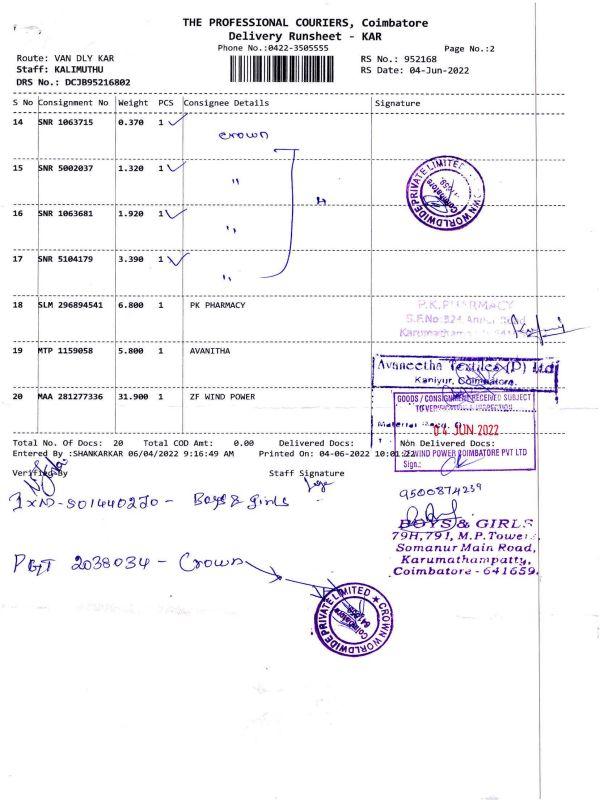 THE PROFESSIONAL COURIERS, Coimbatore
Delivery Runsheet - KAR
Phone No.:0422-3505555 Page No.:2
Route: VAN DLY KAR RS No.: 952168
Staff: KALIMUTHU RS Date: 04-Jun-2022
DRS No.: DCJB95216802
S No Consignment No Weight PCS Consignee Details Signature
14 SNR 1063715 0.370 1
crown
15 SNR 5002037 1.320 1
"
16 SNR 1063681 1.920 1
"
17 SNR 5104179 3.390 1
"
4
CROWN WORLDWIDE PRIVATE LIMITED
Coimbatore
18 SLM 296894541 6.800 1 PK PHARMACY
P.K.PHARMACY
S.F.No.324 Road
19 MTP 1159058 5.800 1 AVANITHA
Avaneetha Textiles (P) Ltd
Kaniyur, Coimbatore.
20 MAA 281277336 31.900 1 ZF WIND POWER
GOODS / CONSIGNMENT RECEIVED SUBJECT
TO VERIFICATION & INSPECTION
04 JUN 2022
ZF WIND POWER COIMBATORE PVT LTD
Sign.:
Total No. Of Docs: 20 Total COD Amt: 0.00 Delivered Docs: Non Delivered Docs:
Entered By :SHANKARKAR 06/04/2022 9:16:49 AM Printed On: 04-06-2022
Verified By Staff Signature
9500874239
Boys & girls
BOYS & GIRLS
79H,791, M.P.Tower,
Somanur Main Road,
Karumathampatty,
Coimbatore - 641659.
2038034 - Crown
CROWN WORLDWIDE PRIVATE LIMITED
Coimbatore
641659